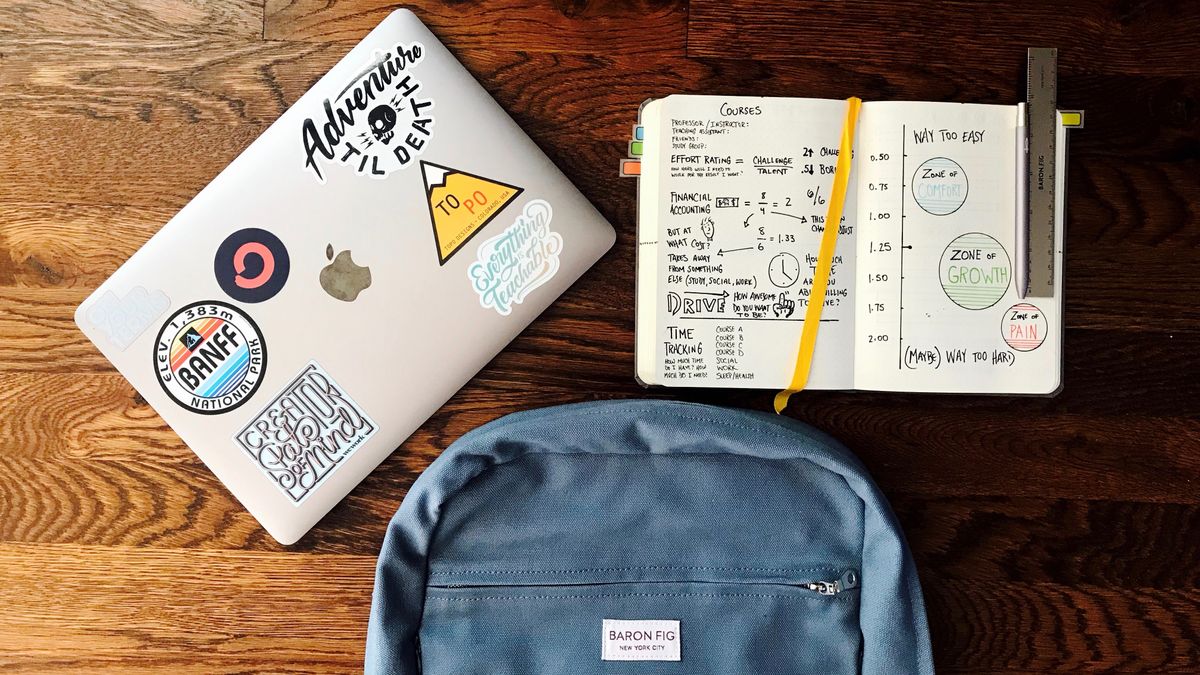 Adventure
'TIL DEATH
TO PO
TOPO DESIGNS • COLORADO, USA
Everything
is
Teachable
ELEV. 1,383m
BANFF
NATIONAL PARK
CREATOR
Pals
of Mind
wework
COURSES
PROFESSOR / INSTRUCTOR:
TEACHING ASSISTANT:
FRIENDS:
STUDY GROUP:
EFFORT RATING = CHALLENGE
TALENT
HOW HARD WILL I NEED TO
WORK FOR THE RESULT I WANT?
FINANCIAL
ACCOUNTING
8
4
= 2
6/6
BUT AT
WHAT COST?
8
6
= 1.33
THIS CAN
TAKES AWAY
FROM SOMETHING
ELSE (STUDY, SOCIAL, WORK)
HOW MUCH
TIME
ARE YOU
DRIVE
HOW AWESOME
DO YOU WANT
TO BE?
TIME
TRACKING
HOW MUCH TIME
DO I HAVE? HOW
MUCH DO I NEED?
COURSE A
COURSE B
COURSE C
COURSE D
SOCIAL
WORK
SLEEP/HEALTH
WAY TOO EASY
0.50
0.75
1.00
1.25
1.50
1.75
2.00
ZONE OF
COMFORT
ZONE OF
GROWTH
ZONE OF
PAIN
(MAYBE) WAY TOO HARD
BARON FIG
BARON FIG
NEW YORK CITY